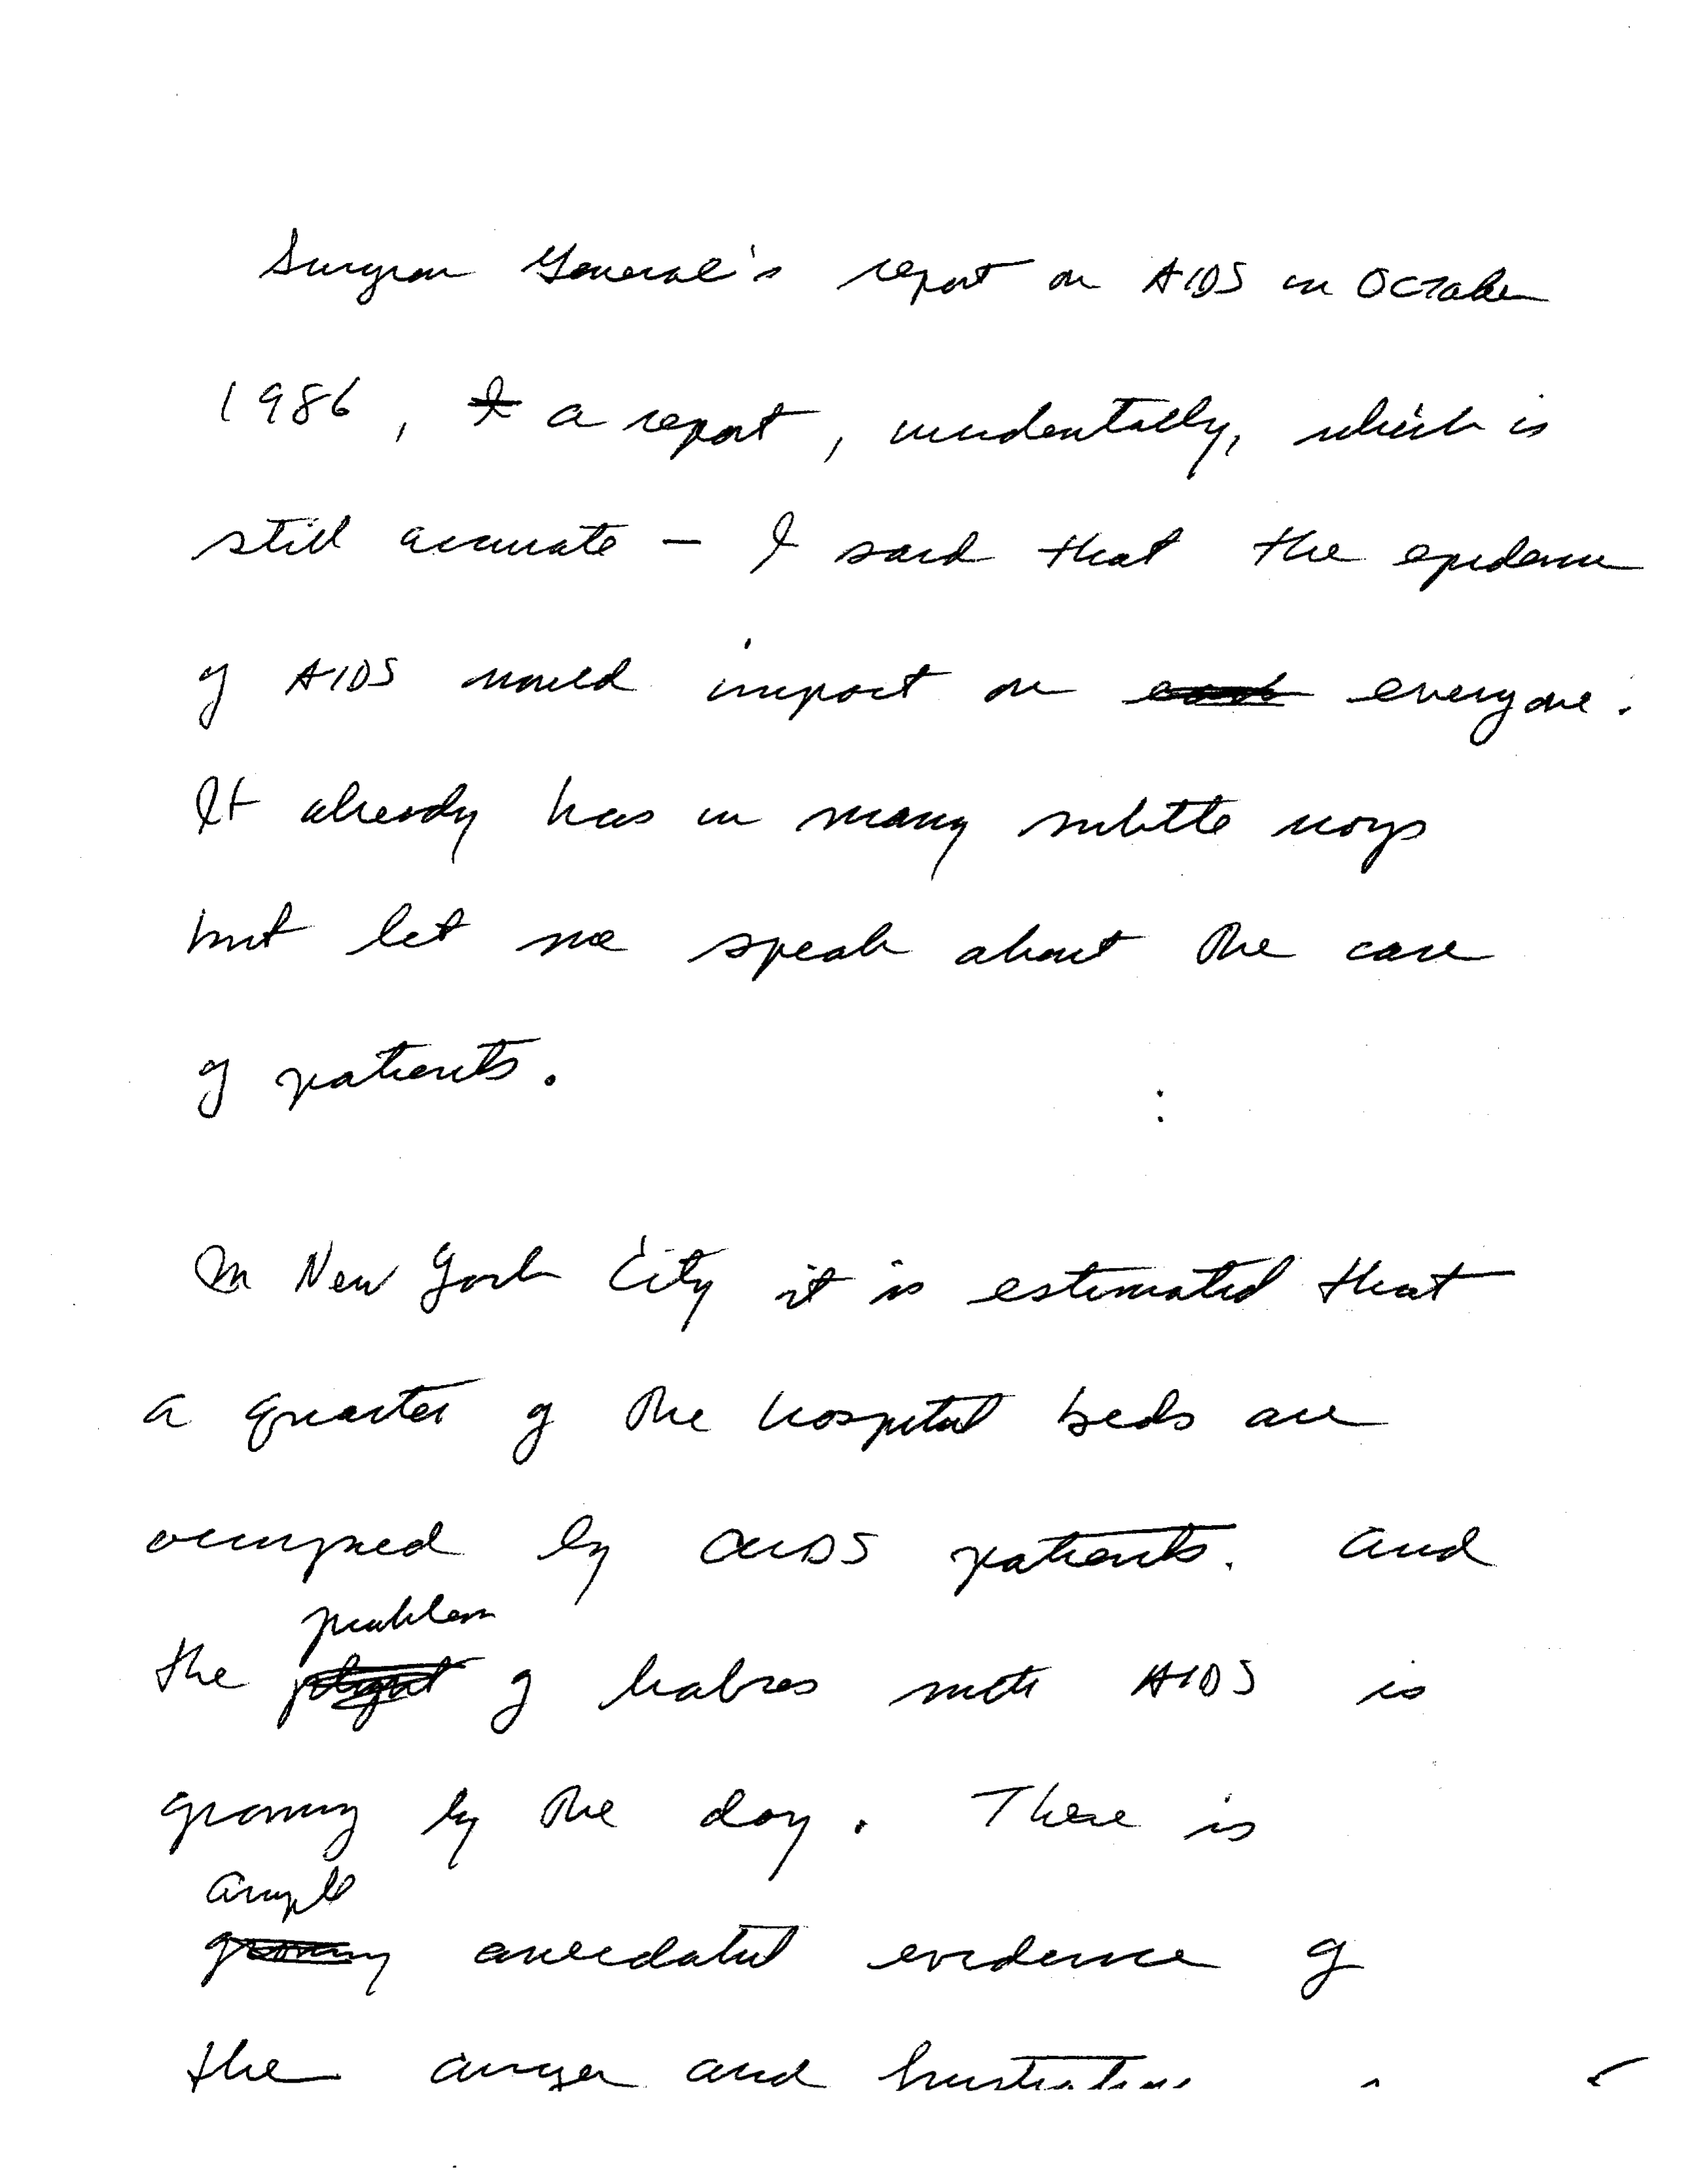 Surgeon General's report on AIDS in October
1986, I a report, incidentally, which is
still accurate – I said that the epidemic
of AIDS would impact on everyone.
It already has in many subtle ways
but let me speak about the care
of patients.
In New York City it is estimated that
a quarter of the hospital beds are
occupied by AIDS patients. And
problem
the plight of babies with AIDS is
growing by the day. There is
ample
growing anecdotal evidence of
the anger and frustration